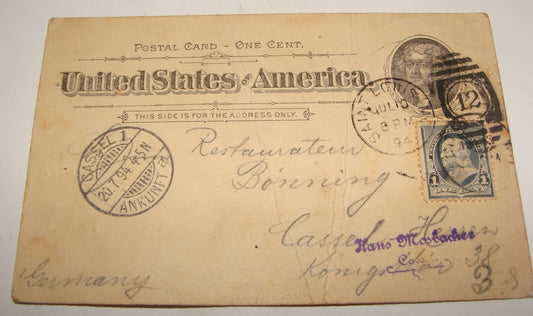 POSTAL CARD - ONE CENT.
United States of America
THIS SIDE IS FOR THE ADDRESS ONLY.
SAINT LOUIS, M
JUL 10
8 PM
94
12
1
1
CASSEL 1
20.7.94
ANKUNFT
Restaurateur
Bönning
Cassel Hessen
Hans Mosbacher
Germany
Königsthor 38
3